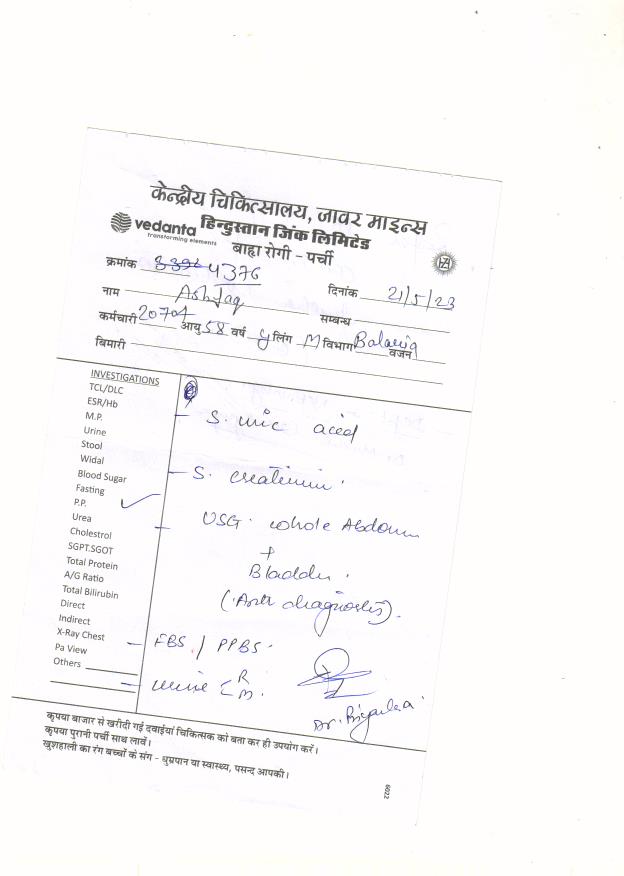 केन्द्रीय चिकित्सालय, जावर माइन्स
vedanta हिन्दुस्तान जिंक लिमिटेड
transforming elements
बाह्य रोगी - पर्ची
क्रमांक 4376
दिनांक 21/5/23
नाम Ashfaq
सम्बन्ध
कर्मचारी 20704 आयु 58 वर्ष y लिंग M विभाग Balaria
वजन
बिमारी
INVESTIGATIONS
TCL/DLC
ESR/Hb
M.P.
Urine
Stool
Widal
Blood Sugar
Fasting
P.P.
Urea
Cholestrol
SGPT.SGOT
Total Protein
A/G Ratio
Total Bilirubin
Direct
Indirect
X-Ray Chest
Pa View
Others
- S. uric acid
- S. creatinin.
- USG. whole Abdomen
+
Bladder.
diagnostis).
- FBS. / PPBS.
- urine R
M.
Dr. Priyanka
कृपया बाजार से खरीदी गई दवाईयां चिकित्सक को बता कर ही उपयोग करें।
कृपया पुरानी पर्ची साथ लावें।
खुशहाली का रंग बच्चों के संग - धुम्रपान या स्वास्थ्य, पसन्द आपकी।
6022